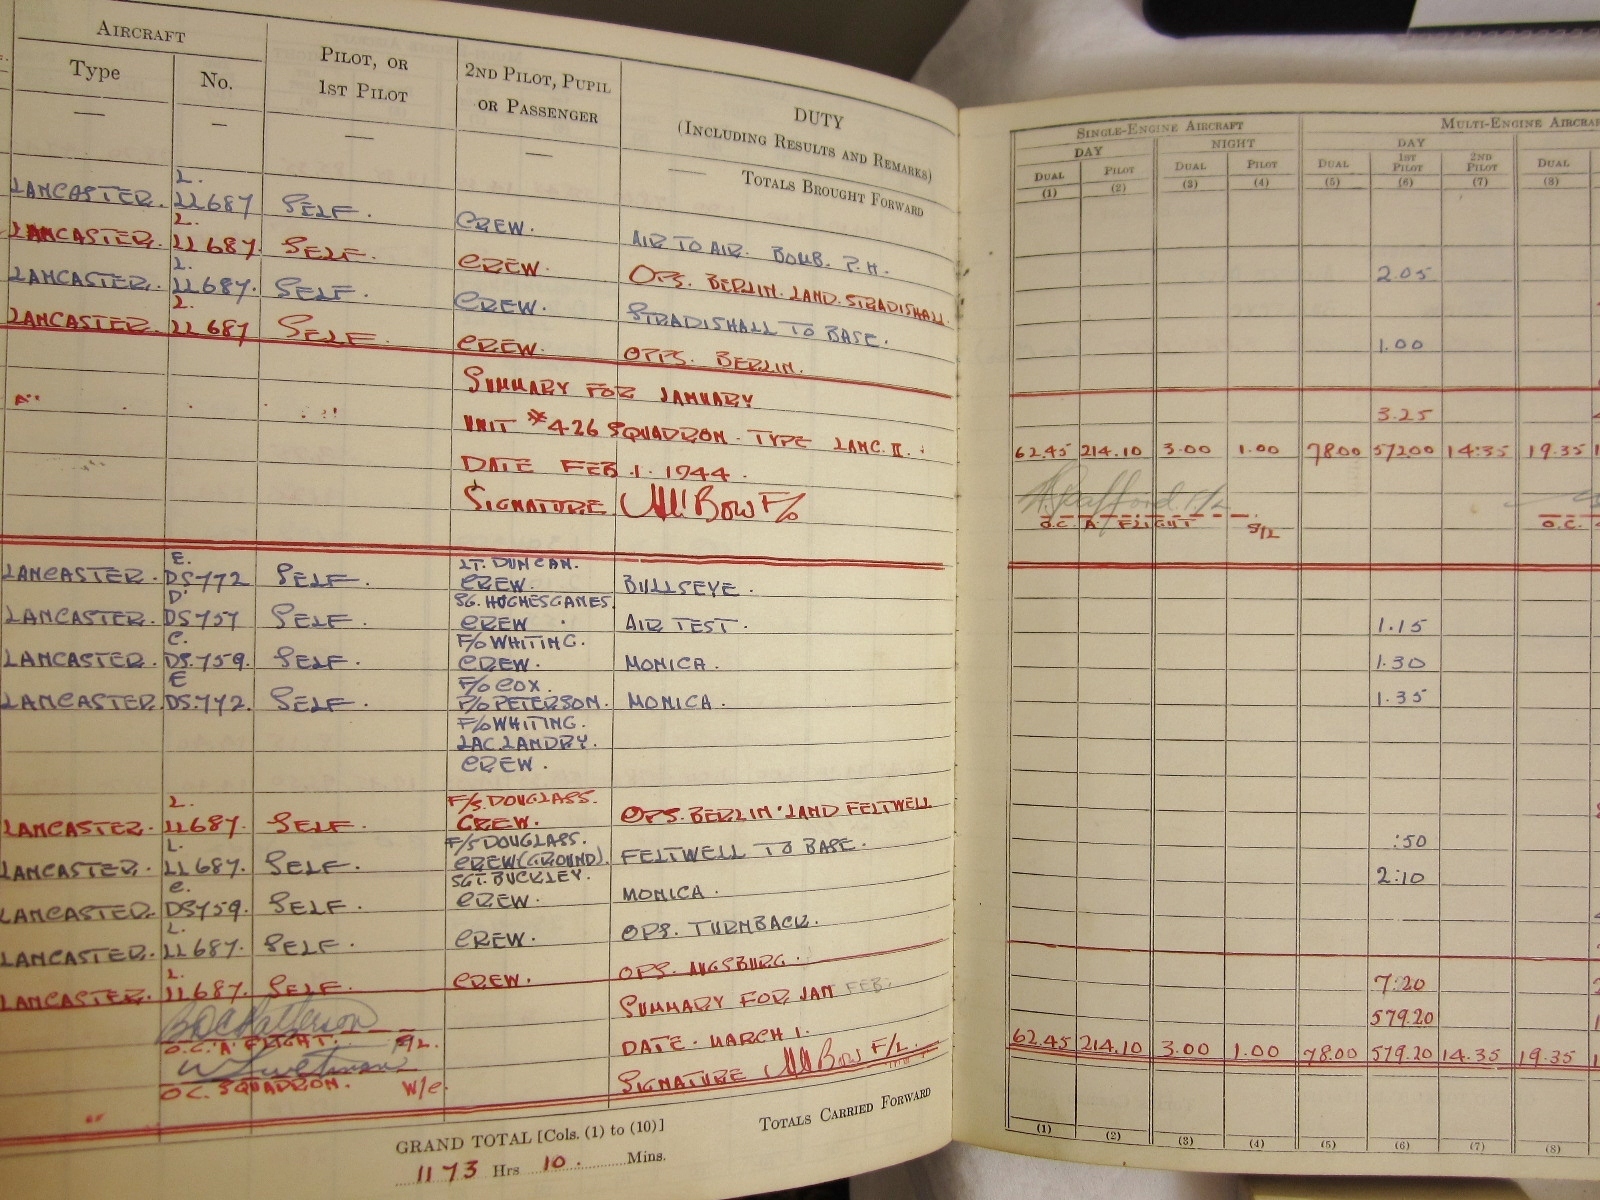 AIRCRAFT
PILOT, OR 1ST PILOT
2ND PILOT, PUPIL OR PASSENGER
DUTY
(INCLUDING RESULTS AND REMARKS)
Type No.
— — — — —
TOTALS BROUGHT FORWARD
LANCASTER. L. LL687 SELF. CREW. AIR TO AIR. BOMB. P.H.
LANCASTER. L. LL687. SELF. CREW. OPS. BERLIN. LAND. STRADISHALL.
LANCASTER. L. LL687. SELF. CREW. STRADISHALL TO BASE.
LANCASTER. L. LL687 SELF. CREW. OPPS. BERLIN.
SUMMARY FOR JANUARY
UNIT #426 SQUADRON. TYPE LANC. II.
DATE FEB. 1. 1944.
SIGNATURE Bow F/O
LANCASTER. E. DS772 SELF. LT. DUNCAN. CREW. BULLSEYE.
LANCASTER. D' DS757 SELF. SG. HUGHESGAMES. CREW. AIR TEST.
LANCASTER. C. DS.759. SELF. F/O WHITING. CREW. MONICA.
LANCASTER. E DS.772. SELF. F/O COX. P/O PETERSON. MONICA.
F/O WHITING.
LAC. LANDRY.
CREW.
LANCASTER. L. LL687. SELF. F/S. DOUGLASS. CREW. OPS. BERLIN. LAND FELTWELL
LANCASTER. L. LL687. SELF. F/S DOUGLASS. CREW (GROUND). FELTWELL TO BASE.
LANCASTER. C. DS759. SELF. SGT. BUCKLEY. CREW. MONICA.
LANCASTER. L. LL687. SELF. CREW. OPS. TURNBACK.
LANCASTER. L. LL687. SELF. CREW. OPS. AUGSBURG.
SUMMARY FOR JAN FEB.
O.C. 'A' FLIGHT. DATE. MARCH 1.
SIGNATURE Bow F/L.
O.C. SQUADRON. W/C.
TOTALS CARRIED FORWARD
GRAND TOTAL [Cols. (1) to (10)]
1173 Hrs 10. Mins.
SINGLE-ENGINE AIRCRAFT MULTI-ENGINE
DAY NIGHT DAY
DUAL PILOT DUAL PILOT DUAL 1ST PILOT 2ND PILOT DUAL
(1) (2) (3) (4) (5) (6) (7) (8)
2.05
1.00
3.25
62.45 214.10 3.00 1.00 78.00 572.00 14:35 19.35
O.C. 'A' FLIGHT S/L O.C.
1.15
1.30
1.35
:50
2:10
7:20
579.20
62.45 214.10 3.00 1.00 78.00 579.20 14.35 19.35
(1) (2) (3) (4) (5) (6) (7) (8)